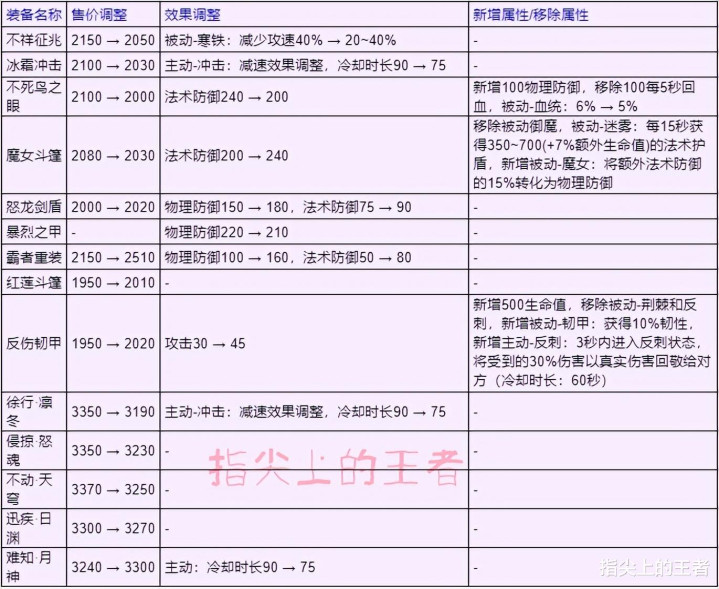 装备名称 售价调整 效果调整 新增属性/移除属性
不祥征兆 2150 → 2050 被动-寒铁：减少攻速40% → 20~40% -
冰霜冲击 2100 → 2030 主动-冲击：减速效果调整，冷却时长90 → 75 -
不死鸟之眼 2100 → 2000 法术防御240 → 200 新增100物理防御，移除100每5秒回
血，被动-血统：6% → 5%
魔女斗篷 2080 → 2030 法术防御200 → 240 移除被动御魔，被动-迷雾：每15秒获
得350~700(+7%额外生命值)的法术护
盾，新增被动-魔女：将额外法术防御
的15%转化为物理防御
怒龙剑盾 2000 → 2020 物理防御150 → 180，法术防御75 → 90 -
暴烈之甲 - 物理防御220 → 210 -
霸者重装 2150 → 2510 物理防御100 → 160，法术防御50 → 80 -
红莲斗篷 1950 → 2010 - -
反伤韧甲 1950 → 2020 攻击30 → 45 新增500生命值，移除被动-荆棘和反
刺，新增被动-韧甲：获得10%韧性，
新增主动-反刺：3秒内进入反刺状态，
将受到的30%伤害以真实伤害回敬给对
方（冷却时长：60秒）
徐行·凛冬 3350 → 3190 主动-冲击：减速效果调整，冷却时长90 → 75 -
侵掠·怒魂 3350 → 3230 - -
不动·天穹 3370 → 3250 - -
迅疾·日渊 3300 → 3270 - -
难知·月神 3240 → 3300 主动：冷却时长90 → 75 -
指尖上的王者
指尖上的王者